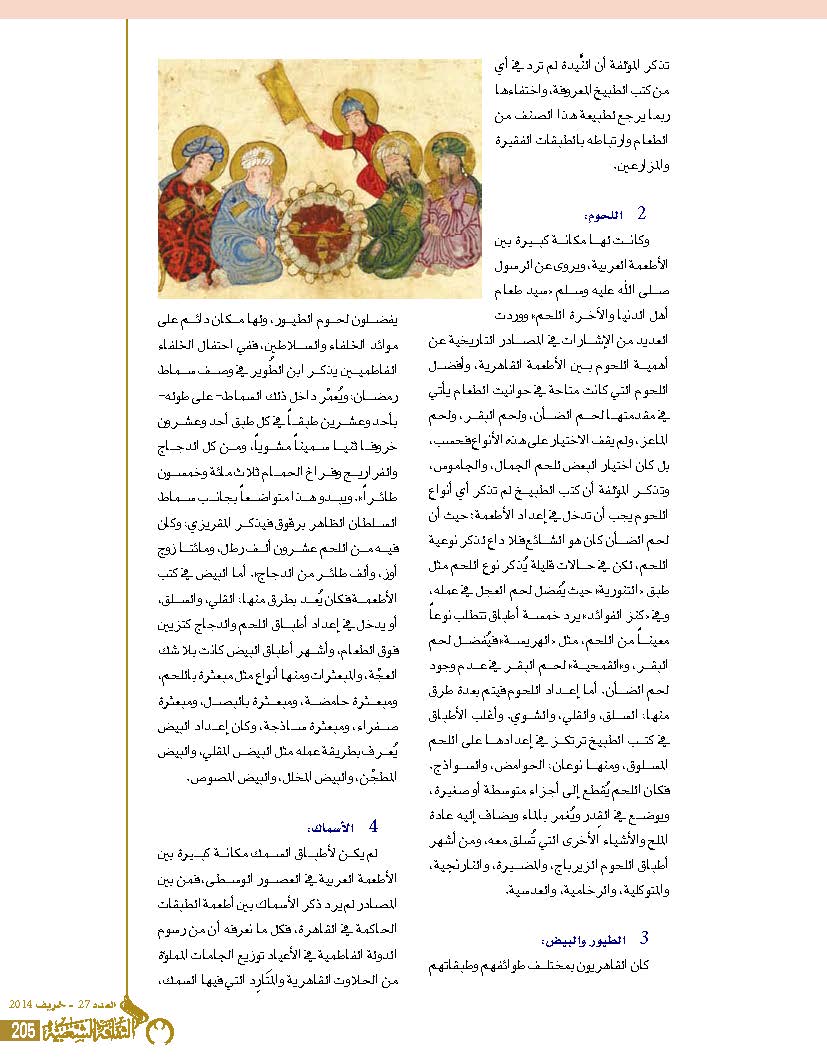 تذكر المؤلفة أن النَّيدة لم ترد في أي
من كتب الطبيخ المعروفة، واختفاءها
ربما يرجع لطبيعة هذا الصنف من
الطعام وارتباطه بالطبقات الفقيرة
والمزارعين.
2 اللحوم:
وكانت لها مكانة كبيرة بين
الأطعمة العربية، ويروى عن الرسول
صلى الله عليه وسلم «سيد طعام
أهل الدنيا والأخرة اللحم» ووردت
العديد من الإشارات في المصادر التاريخية عن
أهمية اللحوم بين الأطعمة القاهرية، وأفضل
اللحوم التي كانت متاحة في حوانيت الطعام يأتي
في مقدمتها لحم الضأن، ولحم البقر، ولحم
الماعز، ولم يقف الاختيار على هذه الأنواع فحسب،
بل كان اختيار البعض للحم الجمال، والجاموس،
وتذكر المؤلفة أن كتب الطبيخ لم تذكر أي أنواع
اللحوم يجب أن تدخل في إعداد الأطعمة؛ حيث أن
لحم الضأن كان هو الشائع فلا داع لذكر نوعية
اللحم، لكن في حالات قليلة يُذكر نوع اللحم مثل
طبق «التنورية» حيث يُفضل لحم العجل في عمله،
وفي «كنز الفوائد» يرد خمسة أطباق تتطلب نوعاً
معيناً من اللحم، مثل «الهريسة» فيُفضل لحم
البقر، و«القمحية» لحم البقر في عدم وجود
لحم الضأن. أما إعداد اللحوم فيتم بعدة طرق
منها: السلق، والقلي، والشوي. وأغلب الأطباق
في كتب الطبيخ ترتكز في إعدادها على اللحم
المسلوق، ومنها نوعان: الحوامض، والسواذج.
فكان اللحم يُقطع إلى أجزاء متوسطة أو صغيرة،
ويوضع في القِدر ويُغمر بالماء ويضاف إليه عادة
الملح والأشياء الأخرى التي تُسلق معه، ومن أشهر
أطباق اللحوم الزيرباج، والمضيرة، والنارنجية،
والمتوكلية، والرخامية، والعدسية.
3 الطيور والبيض:
كان القاهريون بمختلف طوائفهم وطبقاتهم
يفضلون لحوم الطيور، ولها مكان دائم على
موائد الخلفاء والسلاطين، ففي احتفال الخلفاء
الفاطميين يذكر ابن الطُوير في وصف سماط
رمضان: ويُعمَّر داخل ذلك السماط- على طوله-
بأحد وعشرين طبقاً في كل طبق أحد وعشرون
خروفا ثنيا سميناً مشوياً، ومن كل الدجاج
والفراريج وفراخ الحمام ثلاث مائة وخمسون
طائراً»، ويبدو هذا متواضعاً بجانب سماط
السلطان الظاهر برقوق فيذكر المقريزي: وكان
فيه من اللحم عشرون ألف رطل، ومائتا زوج
أوز، وألف طائر من الدجاج». أما البيض في كتب
الأطعمة فكان يُعد بطرق منها: القلي، والسلق،
أو يدخل في إعداد أطباق اللحم والدجاج كتزيين
فوق الطعام، وأشهر أطباق البيض كانت بلا شك
العجّة، والمبعثرات ومنها أنواع مثل مبعثرة باللحم،
ومبعثرة حامضة، ومبعثرة بالبصل، ومبعثرة
صفراء، ومبعثرة ساذجة، وكان إعداد البيض
يُعرف بطريقة عمله مثل البيض المقلي، والبيض
المطجَّن، والبيض المخلل، والبيض المصوص.
4 الأسماك:
لم يكن لأطباق السمك مكانة كبيرة بين
الأطعمة العربية في العصور الوسطى، فمن بين
المصادر لم يرد ذكر الأسماك بين أطعمة الطبقات
الحاكمة في القاهرة، فكل ما نعرفه أن من رسوم
الدولة الفاطمية في الأعياد توزيع الجامات المملؤة
من الحلاوت القاهرية والمَتارِد التي فيها السمك،
العدد 27 - خريف 2014
الثقافة الشعبية
205